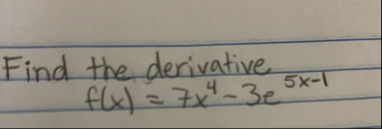 Find the derivative
f(x) = 7x⁴ - 3e⁵ˣ⁻¹